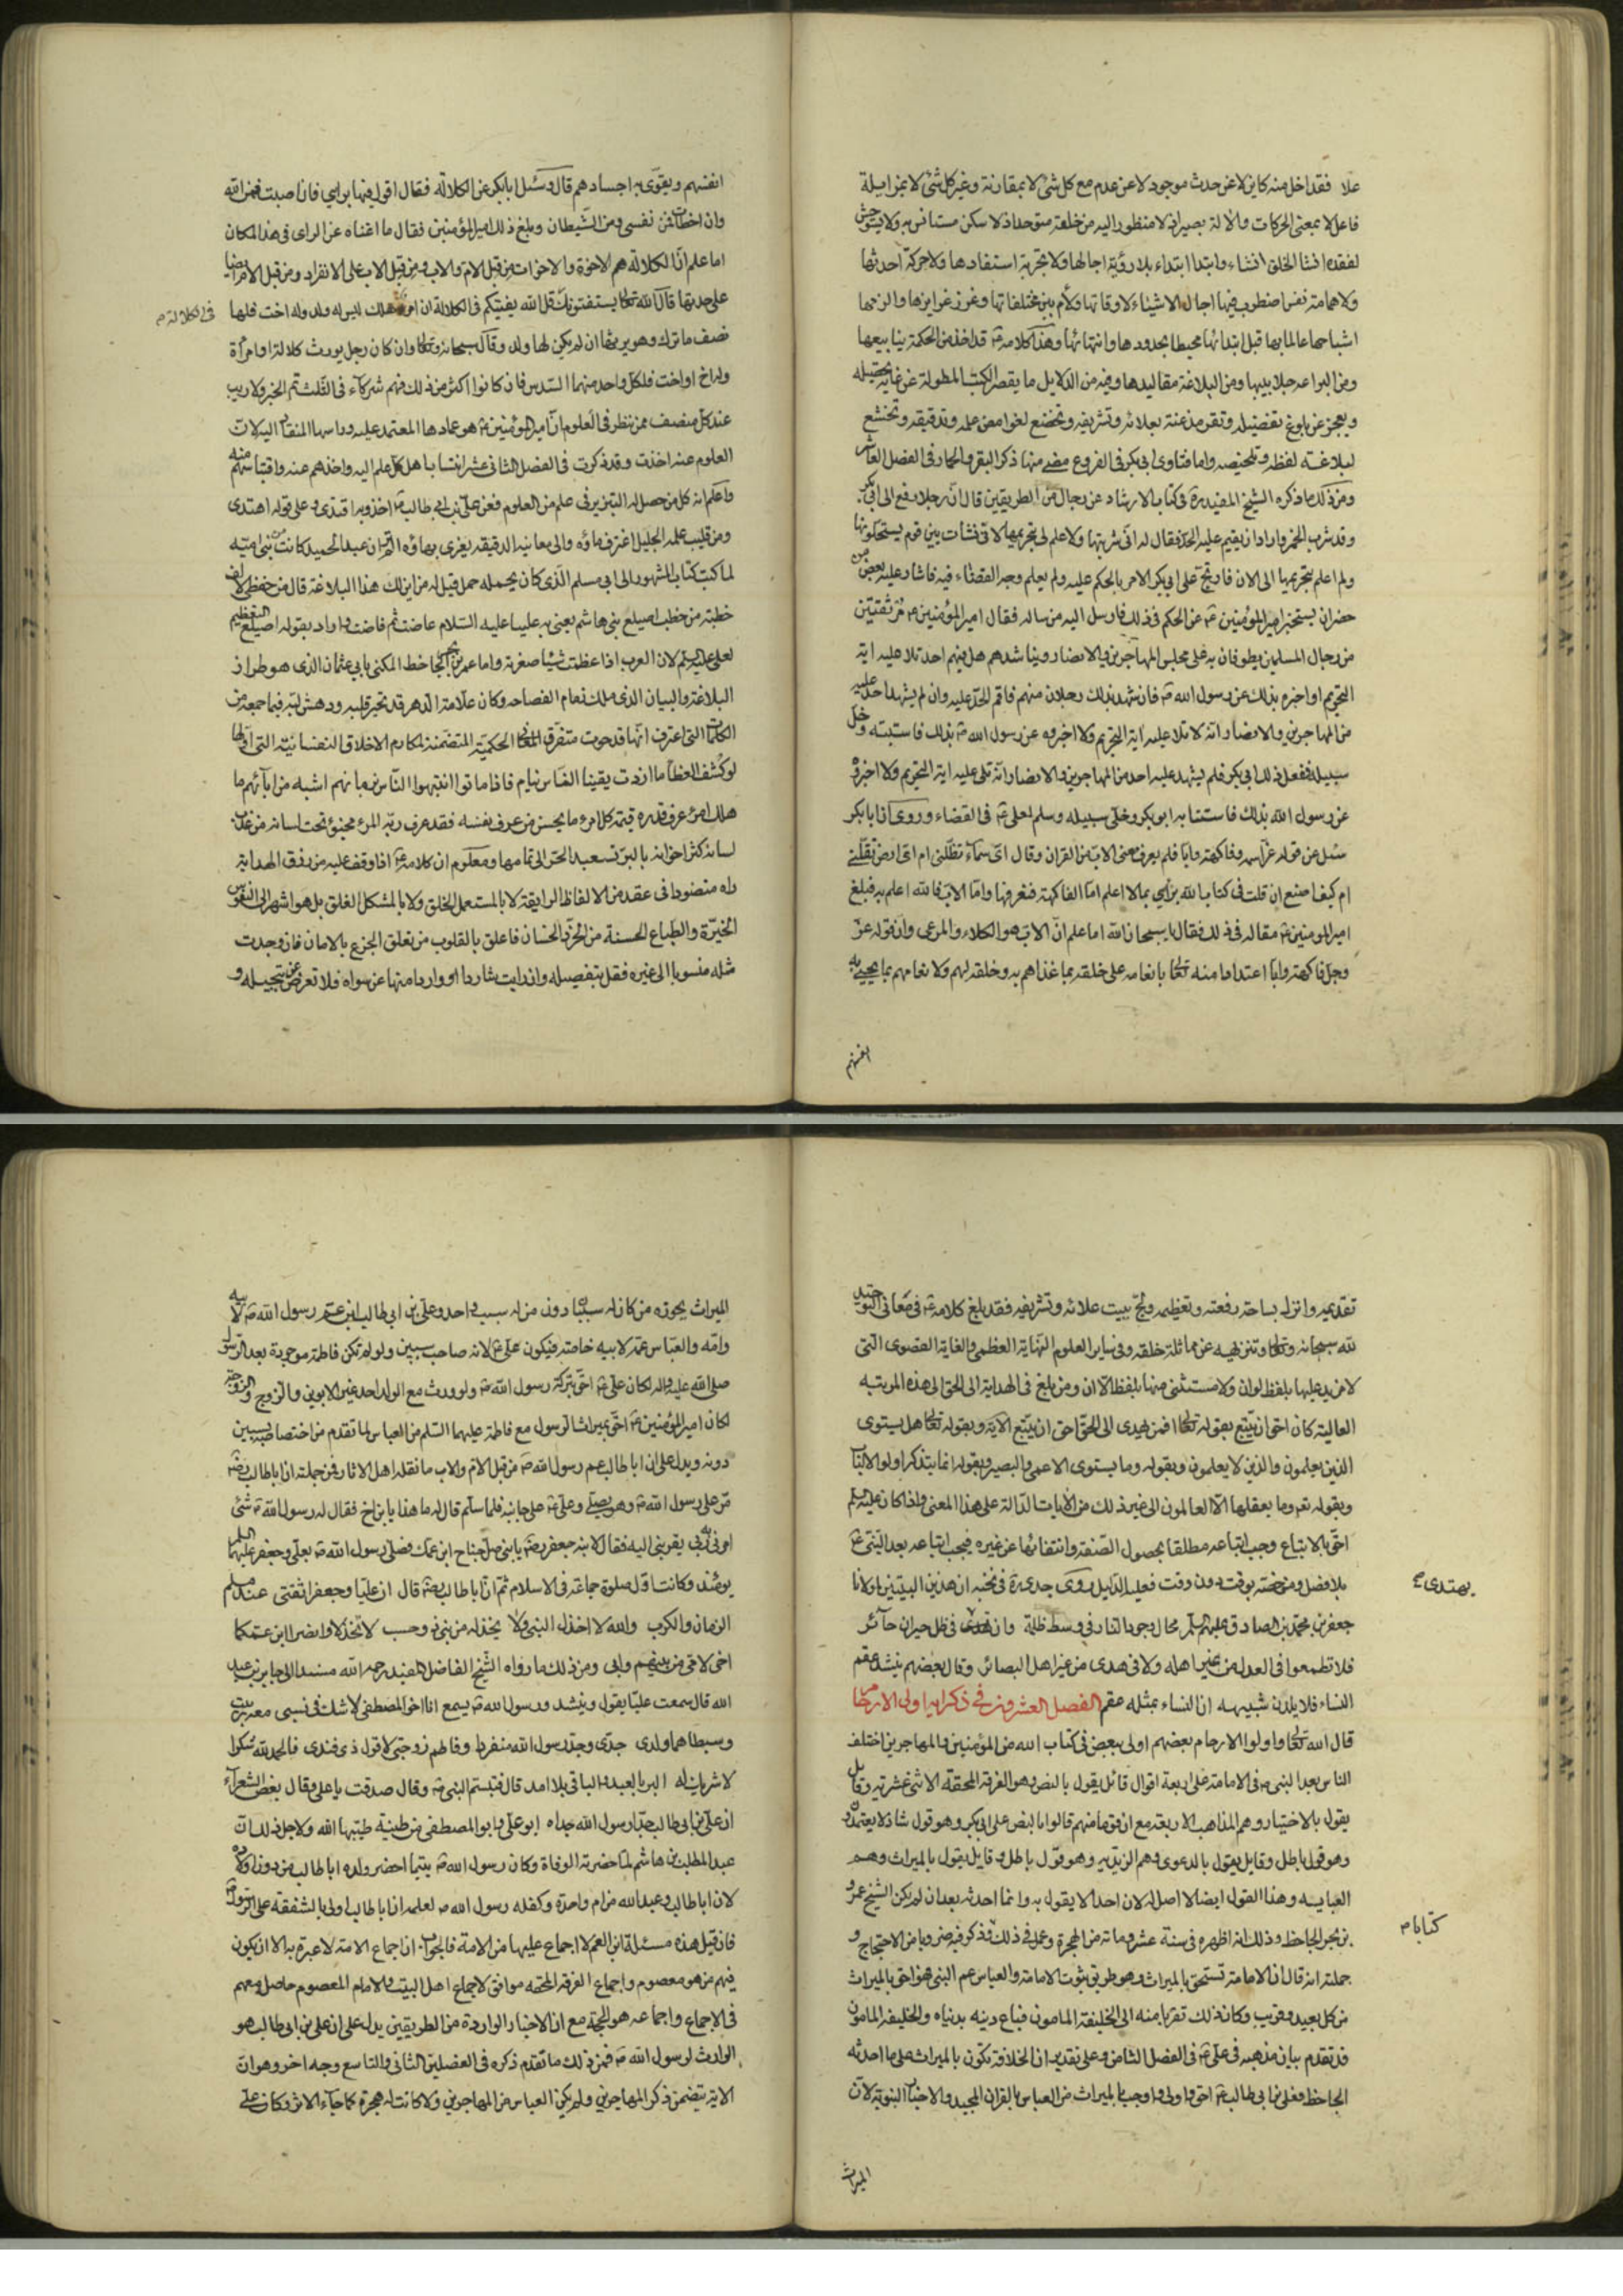 علا فقد اخل منه كاين لا عن حدث موجود لا عن عدم مع كل شئ لا بمقارنة وغير كل شئ لا بمزايلة
فاعل لا بمعنى الحركات والالة بصير اذ لا منظور اليه من خلقه متوحد اذ لا سكن يستانس به ولا يستوحش
لفقده انشا الخلق انشاء وابتدا ابتداء بلا روية اجالها ولا تجربة استفادها ولا حركة احدثها
ولا همامة نفس اضطرب فيها اجال الاشياء لاوقاتها ولأم بين مختلفاتها وغرز غرايزها والزمها
اشباحها عالما بها قبل ابتدائها محيطا بحدودها وانتهائها وهذا كلامه ع قد اخذ من الحكمة ينابيعها
ومن البراعه جلابيبها ومن البلاغة مقاليدها وفيه من الدلايل ما يقصر الكتب المطولة عن غاية تحصيله
ويعجز عن بلوغ تفضيله وتقر مذعنة بعلائه وتشريفه وتخضع لغوامض علمه وتدقيقه وتخشع
لبلاغته لفظه وتلخيصه واما فتاوى ابى بكر فى الفروع مضى منها ذكر البقر والحمار فى الفصل العاشر
ومن ذلك ما ذكره الشيخ المفيد ره فى كتاب الارشاد عن رجال من الطريقين قال ان رجلا رفع الى ابى بكر
وقد شرب الخمر واراد ان يقيم عليه الحد فقال له انى شربتها ولا علم لى بتحريمها لانى نشات بين قوم يستحلونها
ولم اعلم بتحريمها الى الان فارتج على ابى بكر الامر بالحكم عليه ولم يعلم وجه القضاء فيه فاشار عليه بعض من
حضر ان يستخبر امير المؤمنين ع عن الحكم فى ذلك فارسل اليه من ساله فقال امير المؤمنين ع مر ثقتين
من رجال المسلمين يطوفان به على مجلس المهاجرين والانصار ويناشدهم هل فيهم احد تلا عليه اية
التحريم او اخبره بذلك عن رسول الله ص فان شهد بذلك رجلان منهم فاقم الحد عليه وان لم يشهد احد عليه
من المهاجرين والانصار انه لا تلا عليه اية التحريم ولا اخبره عن رسول الله ص بذلك فاستتبه وخل
سبيله ففعل ذلك ابى بكر فلم يشهد عليه احد من المهاجرين والانصار انه تلى عليه اية التحريم ولا اخبره
عن رسول الله بذلك فاستتابه ابو بكر وخلى سبيله وسلم لعلى ع فى القضاء وروى ان ابا بكر
سئل عن قوله عز اسمه وفاكهة وابا فلم يعرف معنى الاب من القران وقال اى سماء تظلنى ام اى ارض تقلنى
ام كيف اصنع ان قلت فى كتاب الله برأيى بما لا اعلم اما الفاكهة فنعرفها واما الاب فالله اعلم به فبلغ
امير المومنين ع مقاله فى ذلك فقال يا سبحان الله اما علم ان الاب هو الكلاء والمرعى وان قوله عز
وجل فاكهة وابا اعتدادا منه تعالى بانعامه على خلقه بما غذاهم به وخلقه لهم ولانعامهم بما يحيى به
انفسهم
انفسهم ويقوى به اجسادهم قال وسئل ابا بكر عن الكلالة فقال اقول فيها برايى فان اصبت فمن الله
وان اخطات فمن نفسى ومن الشيطان وبلغ ذلك امير المؤمنين فقال ما اغناه عن الراى فى هذا المكان
اما علم ان الكلالة هم الاخوة والاخوات من قبل الام والاب ومن قبل الاب على الانفراد ومن قبل الام ايضا
على حدتها قال الله تعالى يستفتونك قل الله يفتيكم فى الكلالة ان امرؤ هلك ليس له ولد وله اخت فلها
نصف ما ترك وهو يرثها ان لم يكن لها ولد وقال سبحانه وتعالى وان كان رجل يورث كلالة او امرأة
وله اخ او اخت فلكل واحد منهما السدس فان كانوا اكثر من ذلك فهم شركاء فى الثلث تم الخبر ولا ريب
عند كل منصف ممن ينظر فى العلوم ان امير المؤمنين ع هو عمادها المعتمد عليه وراسها المنقاد اليه لان
العلوم عنه اخذت وقد ذكرت فى الفصل الثانى عشر انتساب اهل كل علم اليه واخذهم عنه واقتباسهم منه
واعلم انه كل من حصل له التبريز فى علم من العلوم فعن على بن ابى طالب ع اخذ وبه اقتدى وعلى قوله اهتدى
ومن قليب علمه الجليل اغترف ماؤه والى معانيه الدقيقه يعزى بهاؤه الم تر ان عبد الحميد كاتب بنى اميه
لما كتب كتابه المشهور الى ابى مسلم الذى كان يحمله جمل قيل له من اين لك هذا البلاغة قال من حفظى الف
خطبة من خطب اصيلع بنى هاشم يعنى به عليا عليه السلام غاضت ثم فاضت واراد بقوله اصيلع التعظيم
لعلى عليه السلم لان العرب اذا عظمت شيئا صغرته واما عمرو بن بحر الجاحظ المكنى بابى عثمان الذى هو طراز
البلاغة والبيان الذى ملك زمام الفصاحه وكان علامة الدهر قد تحير قلبه ودهش لبه فيما جمعه من
الكلمات التى اعترف انها قد حوت متفرق المعانى الحكمية المتضمنة لمكارم الاخلاق النفسانية التى اولها
لو كشف الغطا ما ازددت يقينا الناس نيام فاذا ماتوا انتبهوا الناس بزمانهم اشبه من ابآئهم ما
هلك امرئ عرف قدره قيمة كل امرء ما يحسن من عرف نفسه فقد عرف ربه المرء مخبوؤ تحت لسانه من عذب
لسانه كثر اخوانه بالبر تستعبد الحر الى تمامها ومعلوم ان كلامه ع اذا وقف عليه من رزق الهداية
راه منضودا فى عقد من الالفاظ الرايقة لا بالمستعمل الخلق ولا بالمشكل الغلق بل هو اشهر الى النفوس
الخيرة والطباع الحسنة من الخرد الحسان فاعلق بالقلوب من تعلق الجزع بالامان فان وجدت
مثله منسوبا الى غيره فقل بتفضيله وان رايت شاردا او واردا منها عن سواه فلا تعرض عن تبجيله و
فى الكلالة م
تقديمه وانزله بساحة رفعته وتعظيمه ولج ببيت علائه وتشريفه فقد بلغ كلامه ع فى معانى التوحيد
لله سبحانه وتعالى وتنزيهه عن مماثلة خلقه وفى ساير العلوم النهاية العظمى والغاية القصوى التى
لا مزيد عليها بلفظ لو ان ولا مستثنى منها بلفظ الا ان ومن بلغ فى الهداية الى الحق الى هذه المرتبه
العالية كان احق ان يتبع بقوله تعالى افمن يهدى الى الحق احق ان يتبع الاية وبقوله تعالى هل يستوى
الذين يعلمون والذين لا يعلمون وبقوله وما يستوى الاعمى والبصير وبقوله انما يتذكر اولو الالباب
وبقوله تع وما يعقلها الا العالمون الى غير ذلك من الايات الدالة على هذا المعنى واذا كان عليه السلم
احق بالاتباع وجب اتباعه مطلقا بحصول الصفة وانتفائها عن غيره فيجب اتباعه بعد النبى ع
بلا فصل ومن خصه بوقت دون وقت فعليه الدليل روى جدى ره فى نخبه ان هذين البيتين لمولانا
جعفر بن محمد الصادق عليهم السلم محال وجود النار فى وسط ظلمة وان يهتدى فى ظل حيران حآئر
فلا تطمعوا فى العدل من غير اهله ولا فى هدى من غير اهل البصائر وقال بعضهم ينشد عقم
النساء فلا يلدن شبيهه ان النساء بمثله عقم الفصل العشرون فى ذكر انه اولى الارحام
قال الله تعالى واولوا الارحام بعضهم اولى ببعض فى كتاب الله من المؤمنين والمهاجرين اختلف
الناس بعد النبى ص فى الامامة على اربعة اقوال قائل يقول بالنص وهو الفرقة المحققة الاثنى عشرية وقايل
يقول بالاختيار وهم المذاهب الاربعة مع ان قوما منهم قالوا بالنص على ابى بكر وهو قول شاذ لا يعتمدون
وهو قول باطل وقايل يقول بالدعوى وهم الزيديه وهو قول باطل وقايل يقول بالميراث وهم
العباسيه وهذا القول ايضا لا اصل له لان احدا لا يقول به وانما احدثه بعد ان لم يكن الشيخ عمرو
بن بحر الجاحظ وذلك انه اظهره فى سنة عشر ومائة من الهجرة وعمل فى ذلك وذكر فيه ضروبا من الاحتجاج و
جملته انه قال ان الامامة تستحق بالميراث وهو طريق ثبوت الامامة والعباس عم النبى هو احق بالميراث
من كل بعيد وقريب وكان ذلك تقربا منه الى الخليفة المامون فباع دينه بدنياه والخليفة المامون
قد تقدم بيان مذهبه فى على ع فى الفصل الثامن وعلى تقدير ان الخلافة تكون بالميراث على ما احدثه
الجاحظ فعلى بن ابى طالب ع احق واولى واوجب بالميراث من العباس بالقران المجيد والاخبار النبوية لان
يهتدى
كتابا م
الميراث
الميراث يحوزه من كان له سببا دون من له سبب واحد وعلى بن ابى طالب ابن عم رسول الله ص لابيه
وامه والعباس عمه لابيه خاصة فيكون على ع لانه صاحب سببين ولو لم تكن فاطمة موجودة بعد الرسول
صلى الله عليه واله لكان على ع احق بتركة رسول الله ص ولو ورث مع الولد احد غير الابوين والزوج والزوجة
لكان امير المؤمنين ع احق بميراث الرسول مع فاطمة عليهما السلم من العباس لما تقدم من اختصاصه بسببين
دونه ويدل على ان ابا طالب عم رسول الله ص من قبل الام والاب ما نقله اهل الاثار فمن جملته ان ابا طالب رضه
مر على رسول الله ص وهو يصلى وعلى ع على جانبه فلما سلم قال له ما هذا يا بن اخ فقال له رسول الله ص شئ
امرنى به ربى يقربنى اليه فقال لابنه جعفر رضه يا بنى صل جناح ابن عمك فصلى رسول الله ص بعلى وجعفر عليهما السلم
يومئذ وكانت اول صلوة جماعة فى الاسلام ثم ان ابا طالب رضه قال ان عليا وجعفرا ثقتى عند ملم
الزمان والكرب والله لا اخذل النبى ولا يخذله من بنى ذو حسب لا تخذلا وانصرا ابن عمكما
اخى لامى من بينهم وابى ومن ذلك ما رواه الشيخ الفاضل المفيد رحمه الله مسندا الى جابر بن عبد
الله قال سمعت عليا يقول وينشد ورسول الله ص يسمع انا اخو المصطفى لا شك فى نسبى معه ربيت
وسبطاه هما ولدى جدى وجد رسول الله منفرد وفاطم زوجتى لا قول ذى فندى فالحمد لله شكرا
لا شريك له البر بالعبد والباقى بلا امد قال فتبسم النبى ص وقال صدقت يا على وقال بعض الشعراء
ان على بن ابى طالب جدا رسول الله جداه ابو على وابو المصطفى من طينة طيبها الله ولاجل ذلك ان
عبد المطلب بن هاشم لما حضرته الوفاة وكان رسول الله ص يتيما احضر ولده ابا طالب من دون اولاده
لان ابا طالب وعبد الله من ام واحدة وكفله رسول الله ص لعلمه ان ابا طالب اولى بالشفقة على الرسول
فان قيل هذه مسئلة ابن العم لا اجماع عليها من الامة فالجواب ان اجماع الامة لا عبرة به الا ان يكون
فيهم من هو معصوم واجماع الفرقة المحقه موافق لاجماع اهل البيت والامام المعصوم حاصل معهم
فى الاجماع واجماعه هو الحجة مع ان الاخبار الواردة من الطريقين يدل على ان على بن ابى طالب هو
الوارث لرسول الله ص فمن ذلك ما تقدم ذكره فى الفصلين الثانى والتاسع وجه اخر وهو ان
الاية يتضمن ذكر المهاجرين ولم يكن العباس من المهاجرين ولا كانت له هجرة كما جآء الاثر وكان على